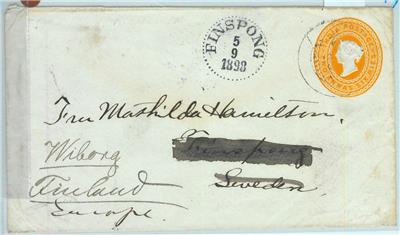 FINSPONG
5
9
1898
Fru Mathilda Hamilton.
Finspong
Wiborg
Sweden
Finland
Europe.